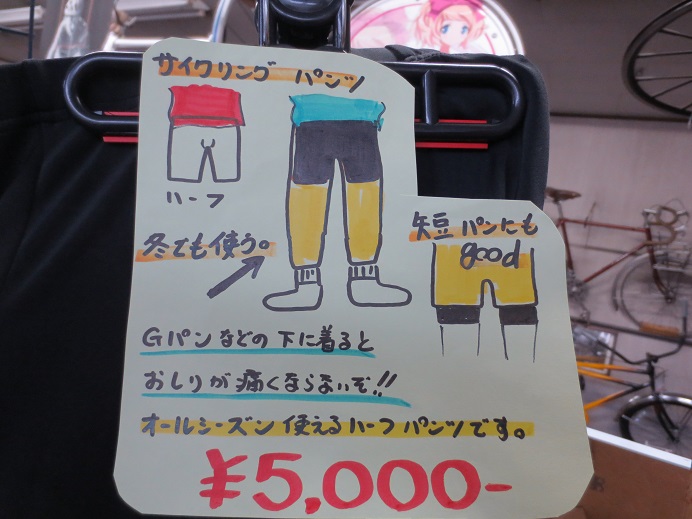 サイクリング パンツ
ハーフ
冬でも使う。
短パンにも
good
Gパンなどの下に着ると
おしりが痛くならないぞ!!
オールシーズン使えるハーフパンツです。
¥5,000-